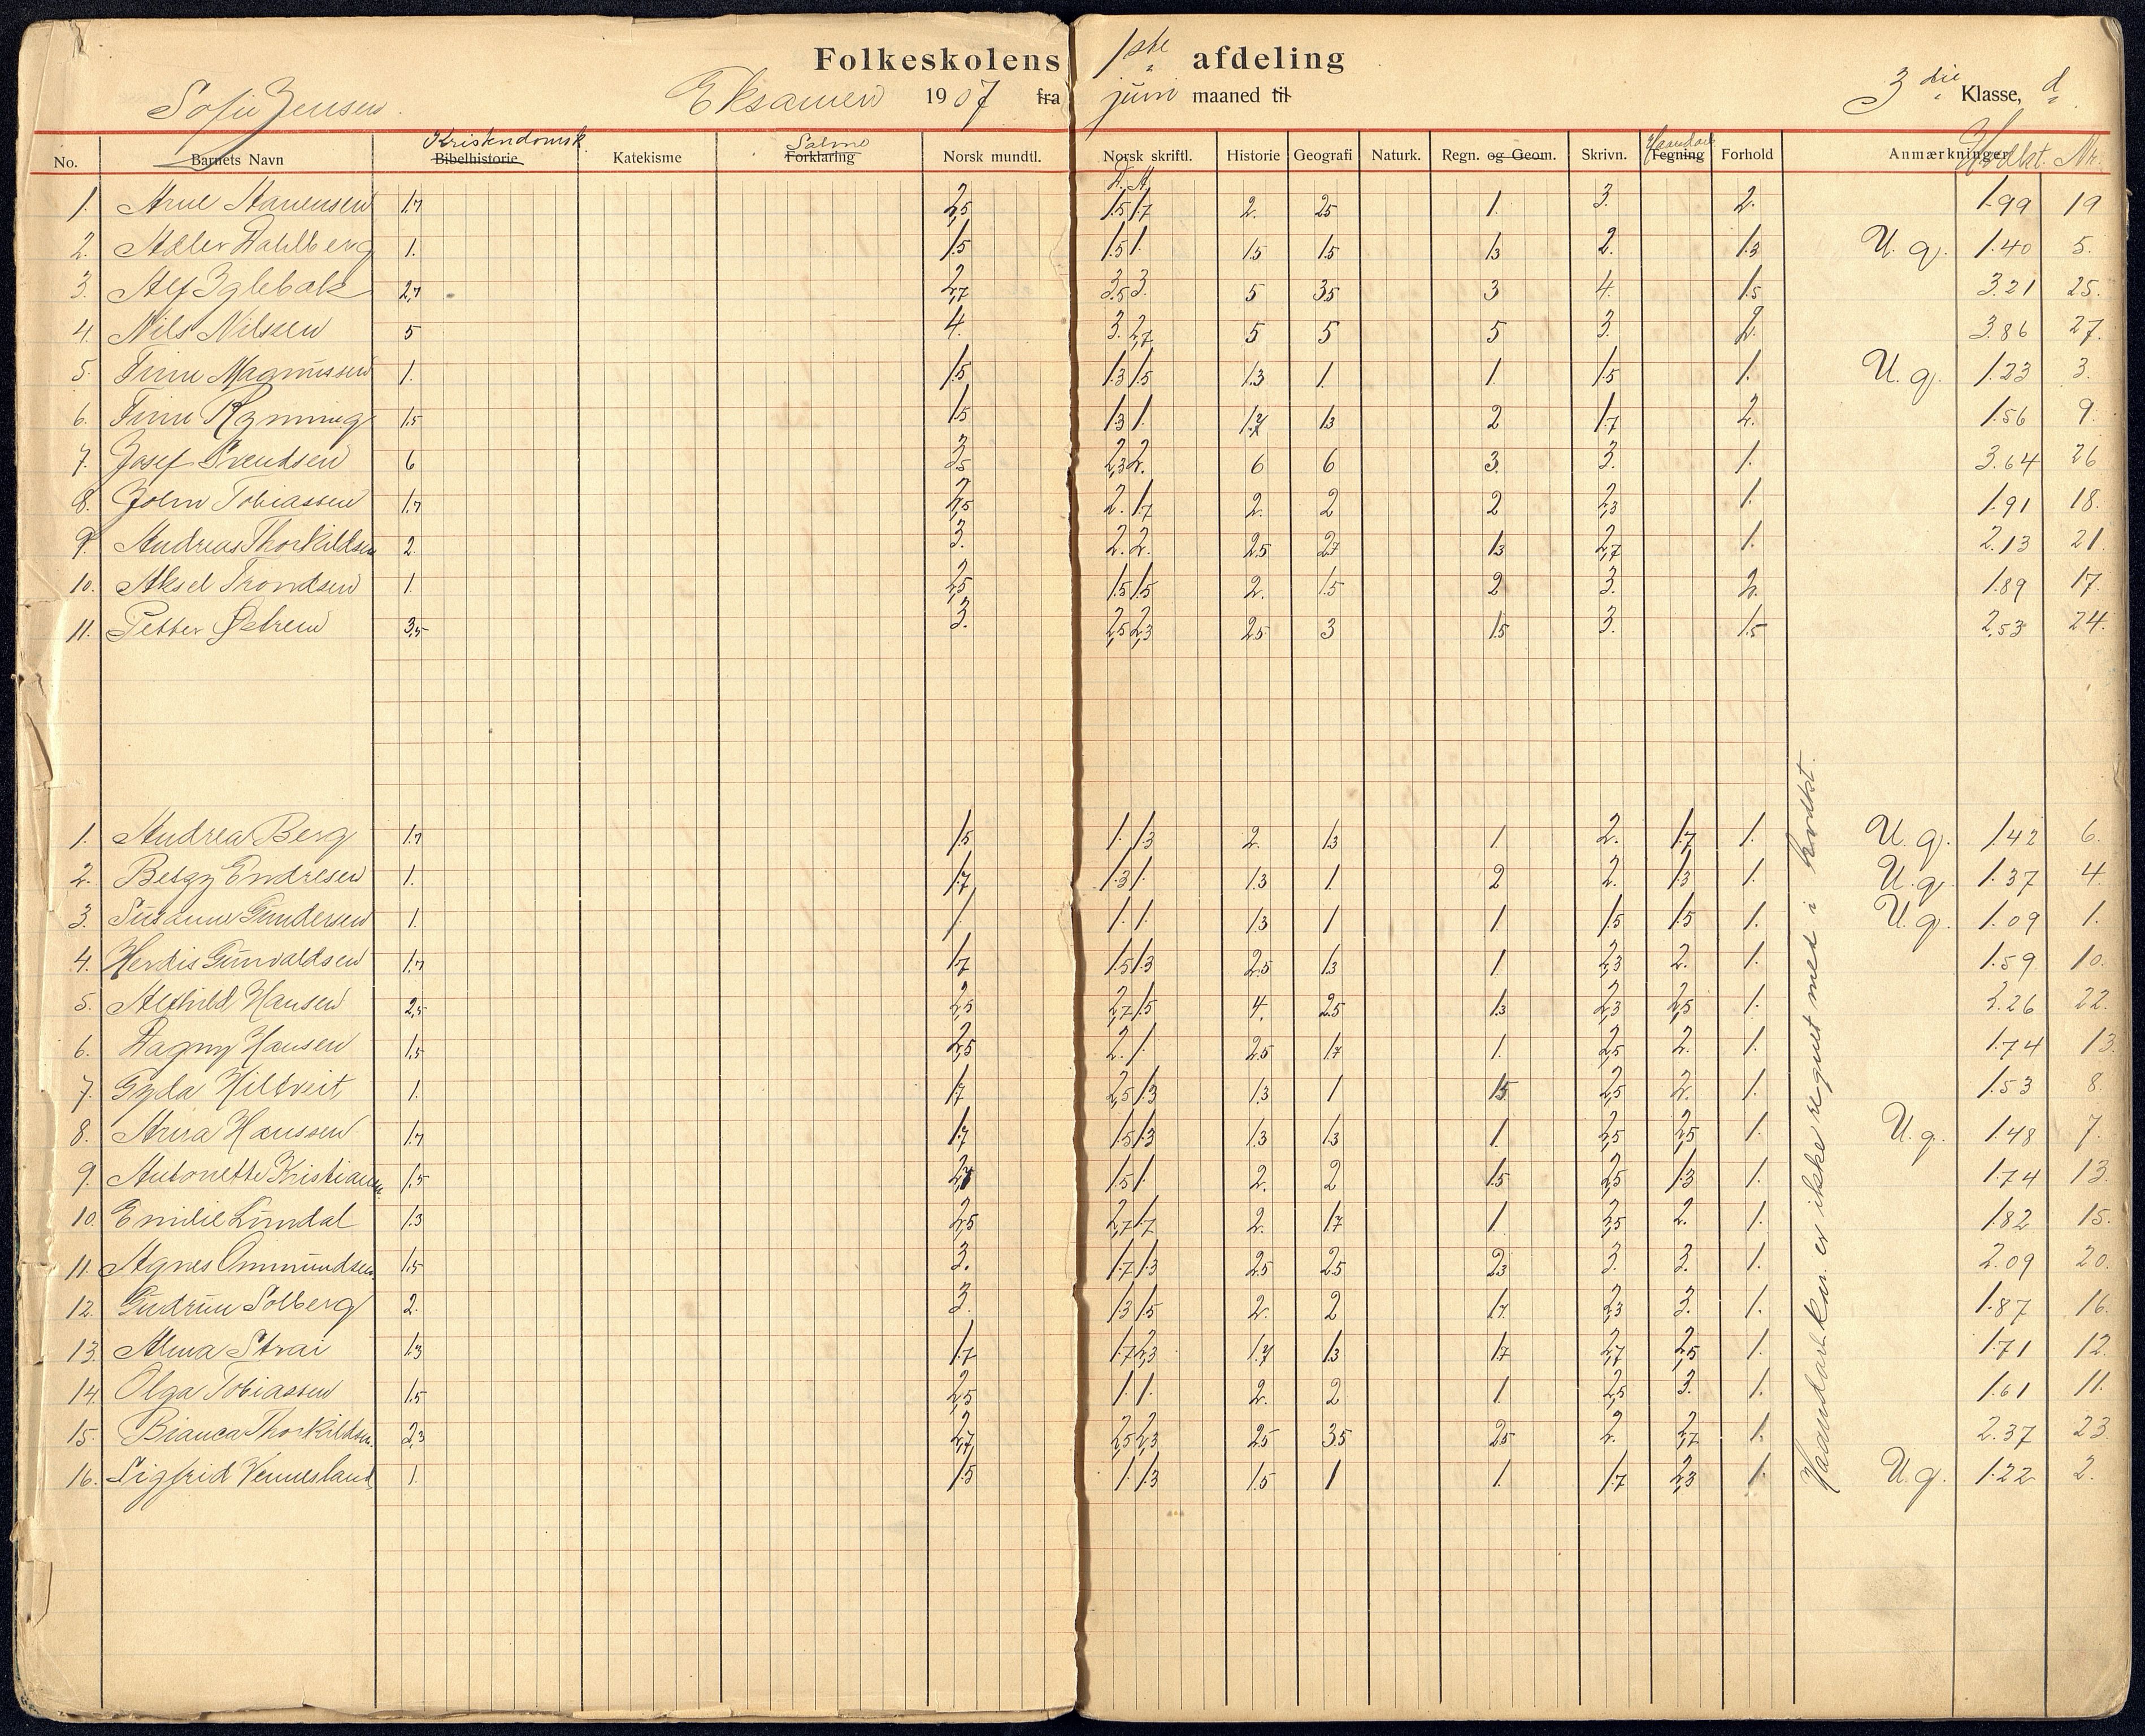 Folkeskolens 1ste afdeling
Sofie Jensen. Eksamen 1907 fra juni maaned til 3die Klasse, d.
No. Barnets Navn Kristendomsk. Bibelhistorie Katekisme Salme Forklaring Norsk mundtl. Norsk skriftl. Historie Geografi Naturk. Regn. og Geom. Skrivn. Haandarb. Tegning Forhold Anmærkninger Hovedkt. Nr.
1. Arne 1.7 2,5 1.5 1.7 2. 2.5 1. 3. 2. 1.99 19
2. Adler Dahlberg 1. 1.5 1.5 1. 1.5 1.5 1.3 2. 1.3 U. g. 1.40 5.
3. Alf Iglebæk 2,7 2,7 3.5 3. 5 3.5 3 4. 1.5 3.21 25.
4. Nils Nilssen 5 4. 3. 2,7 5 5 5 3. 2. 3.86 27.
5. Finn Magnussen 1. 1.5 1.3 1.5 1.3 1 1 1.5 1. U. g. 1.23 3.
6. Finn Ryning 1.5 1.5 1.3 1. 1.7 1.3 2 1.7 2. 1.56 9.
7. Josef Svendsen 6 3.5 2,3 2. 6 6 3. 3. 1. 3.64 26
8. John Tobiassen 1.7 2,5 2. 1.7 2. 2 2 2,3 1. 1.91 18.
9. Andreas Thorkildsen 2. 3. 2. 2. 2.5 2.7 1.3 2,7 1. 2.13 21.
10. Aksel Trondsen 1. 2,5 1.5 1.5 2. 1.5 2 3. 2. 1.89 17.
11. Petter Østrem 3,5 3. 2,5 2,3 2.5 3 1.5 3. 1.5 2.53 24.
1. Andrea Berg 1.7 1.5 1. 1.3 2. 1.3 1 2. 1.7 1. U. g. 1.42 6.
2. Betzy Endresen 1. 1.7 1.3 1. 1.3 1 2 2. 1.3 1. U. g. 1.37 4.
3. Susanne Gundersen 1. 1. 1. 1. 1.3 1 1 1.5 1.5 1. U. g. 1.09 1.
4. Herdis Gunvaldsen 1.7 1.7 1.5 1.3 2.5 1.3 1. 2,3 2. 1. 1.59 10.
5. Alfhild Hansen 2,5 2,5 2,7 1.5 4. 2.5 1.3 2,3 2,5 1. 2.26 22.
6. Dagny Hansen 1.5 2,5 2. 1. 2.5 1.7 1. 2,5 2. 1. 1.74 13.
7. Gyda Hiltveit 1. 1.7 2,5 1.3 1.3 1 1.5 2,5 2. 1. 1.53 8.
8. Anna Hanssen 1.7 1.7 1.5 1.3 1.3 1.3 1. 2,5 2,5 1. U. g. 1.48 7.
9. Antonette Kristiansen 1.5 1.5 1. 2. 2 1.5 2,5 1.3 1. 1.74 13.
10. Emilie Lundal 1.3 2,5 2,7 1.7 2. 1.7 1. 2. 1. 1.82 15.
11. Agnes Ommundsen 1.5 3. 1.7 1.3 2.5 2.5 2.3 3. 3. 1. 2.09 20.
12. Gudrun Solberg 2. 3. 1.3 1.5 2. 2 1.7 2,3 3. 1. 1.87 16.
13. Alma Strai 1.3 1.7 1.7 2,3 1.7 1.3 1.7 2,7 2,5 1. 1.71 12.
14. Olga Tobiassen 1.5 2,5 1. 1. 2. 2 1. 2,5 3. 1. 1.61 11.
15. Bianca Thorkildsen 2,3 2,7 2,5 2,3 2.5 3.5 2.5 2. 2,7 1. 2.37 23.
16. Sigfrid Vennesland 1. 1.5 1. 1.3 1.5 1 1. 1.7 2,3 1. U. g. 1.22 2.
Haandarb.kar. er ikke regnet med i hovedkt.